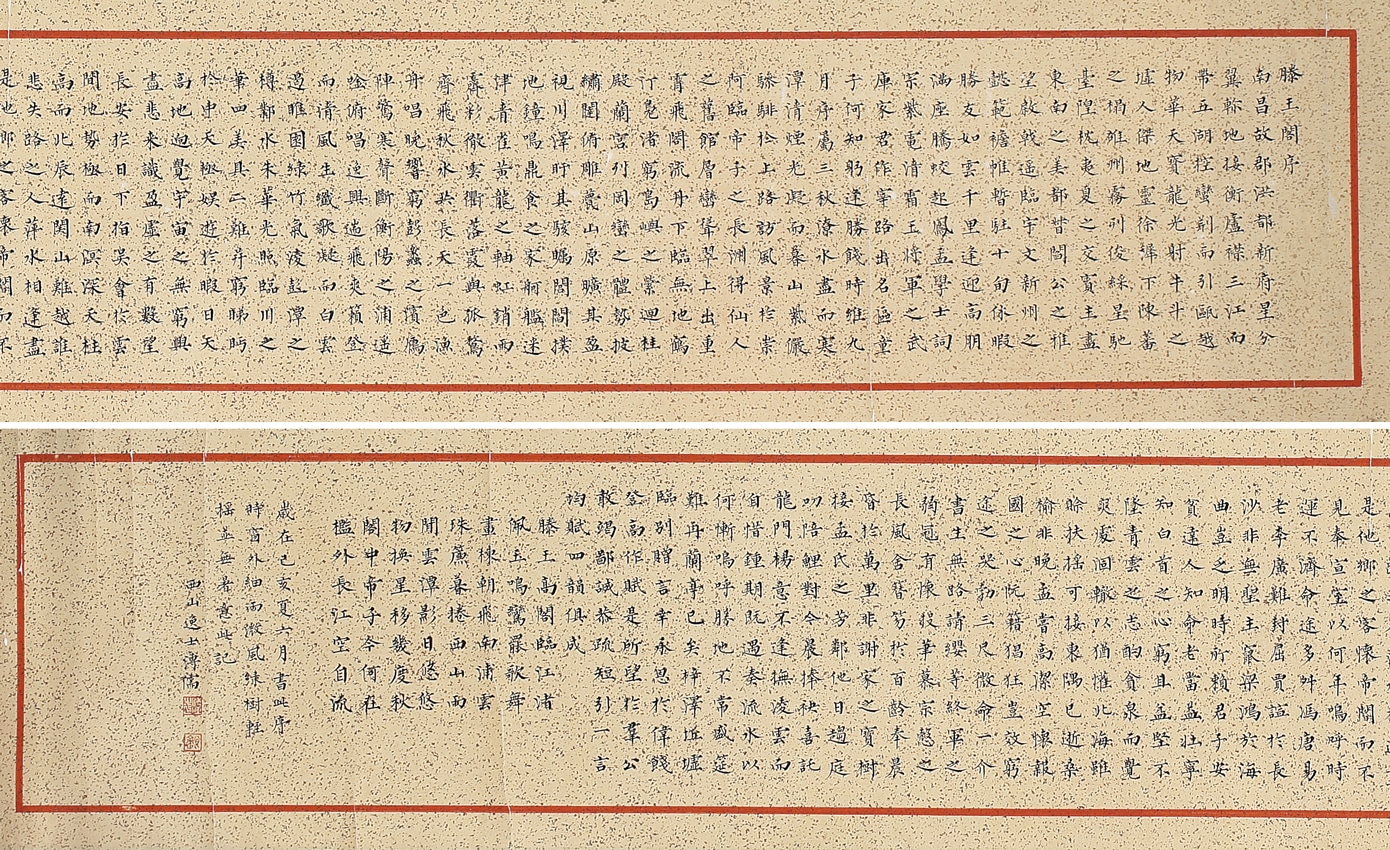 滕王閣序
南昌故郡洪都新府星分
翼軫地接衡廬襟三江而
帶五湖控蠻荊而引甌越
物華天寶龍光射牛斗之
墟人傑地靈徐孺下陳蕃
之榻雄州霧列俊綵星馳
臺隍枕夷夏之交賓主盡
東南之美都督閻公之雅
望棨戟遙臨宇文新州之
懿範襜帷暫駐十旬休暇
勝友如雲千里逢迎高朋
滿座騰蛟起鳳孟學士詞
宗紫電清霜王將軍之武
庫家君作宰路出名區童
子何知躬逢勝餞時維九
月序屬三秋潦水盡而寒
潭清煙光凝而暮山紫儼
驂騑於上路訪風景於崇
阿臨帝子之長洲得仙人
之舊館層巒聳翠上出重
霄飛閣流丹下臨無地鶴
汀鳧渚窮島嶼之縈迴桂
殿蘭宮列岡巒之體勢披
繡闥俯雕甍山原曠其盈
視川澤盱其駭矚閭閻撲
地鐘鳴鼎食之家舸艦迷
津青雀黃龍之軸虹銷雨
霽彩徹雲衢落霞與孤鶩
齊飛秋水共長天一色漁
舟唱晚響窮彭蠡之濱雁
陣驚寒聲斷衡陽之浦遙
唫俯唱逸興遄飛爽籟發
而清風生纖歌凝而白雲
遏睢園綠竹氣淩彭澤之
樽鄴水朱華光照臨川之
筆四美具二難并窮睇眄
於中天極娛遊於暇日天
高地迥覺宇宙之無窮興
盡悲來識盈虛之有數望
長安於日下指吳會於雲
間地勢極而南溟深天柱
高而北辰遠關山難越誰
悲失路之人萍水相逢盡
是他鄉之客懷帝閽而不
是他鄉之客懷帝閽而不
見奉宣室以何年嗚呼時
運不濟命途多舛馮唐易
老李廣難封屈賈誼於長
沙非無聖主竄梁鴻於海
曲豈乏明時所賴君子安
貧達人知命老當益壯寧
知白首之心窮且益堅不
墜青雲之志酌貪泉而覺
爽處涸轍以猶懽北海雖
賒扶搖可接東隅已逝桑
榆非晚孟嘗高潔空懷報
國之心阮籍猖狂豈效窮
途之哭勃三尺微命一介
書生無路請纓等終軍之
弱冠有懷投筆慕宗愨之
長風舍簪笏於百齡奉晨
昏於萬里非謝家之寶樹
接孟氏之芳鄰他日趨庭
叨陪鯉對今晨捧袂喜託
龍門楊意不逢撫淩雲而
自惜鍾期既遇奏流水以
何慚嗚呼勝地不常盛筵
難再蘭亭已矣梓澤丘墟
臨別贈言幸承恩於偉餞
登高作賦是所望於羣公
敢竭鄙誠恭疏短引一言
均賦四韻俱成
滕王高閣臨江渚
佩玉鳴鸞罷歌舞
畫棟朝飛南浦雲
珠簾暮捲西山雨
閒雲潭影日悠悠
物換星移幾度秋
閣中帝子今何在
檻外長江空自流
歲在己亥夏六月書此序
時窗外細雨微風綠樹輕
搖並無著意此記
西山逸士溥儒